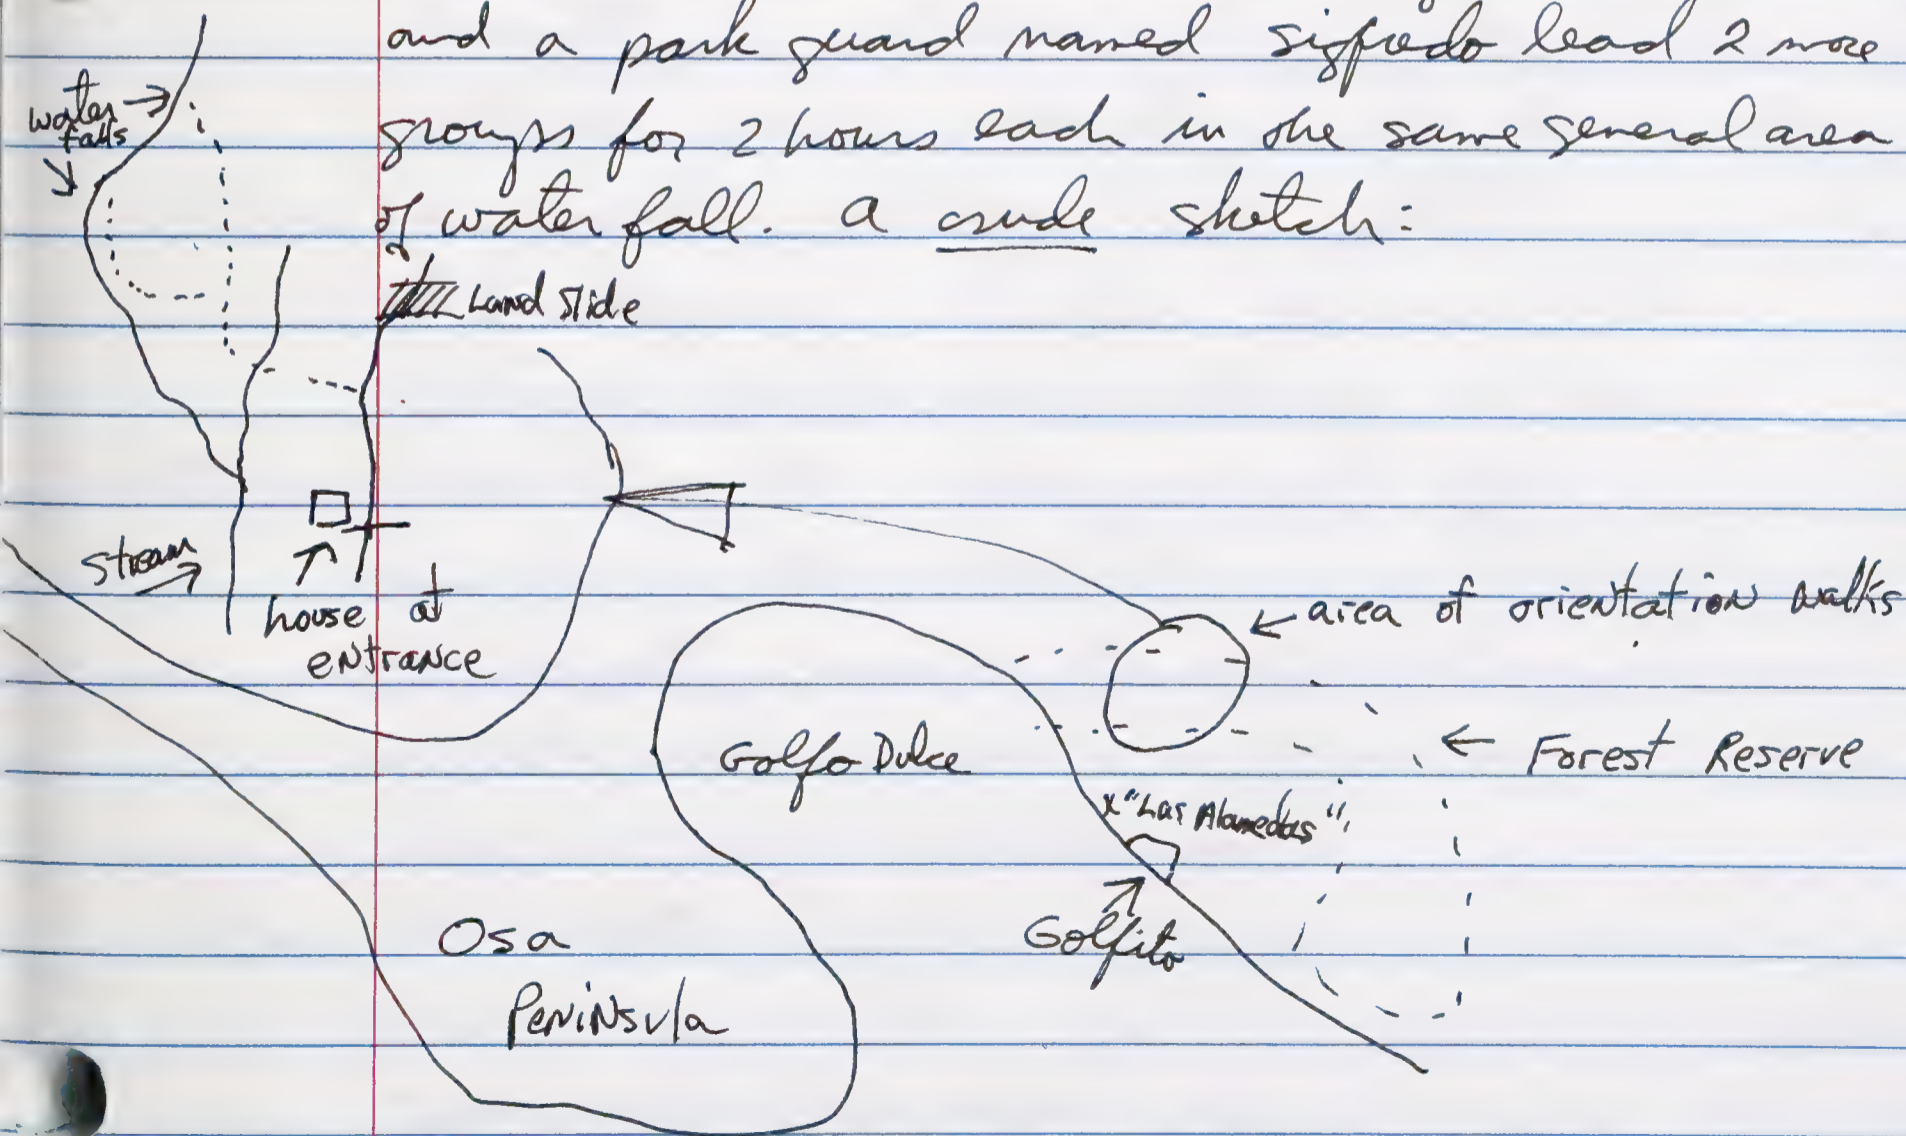 and a park guard named sigfredo lead 2 more
groups for 2 hours each in the same general area
of water fall. a crude sketch:
water
falls
Land slide
stream
house at
entrance
area of orientation walks
Forest Reserve
Golfo Dulce
x "Las Alamedas"
Golfito
Osa
Peninsula